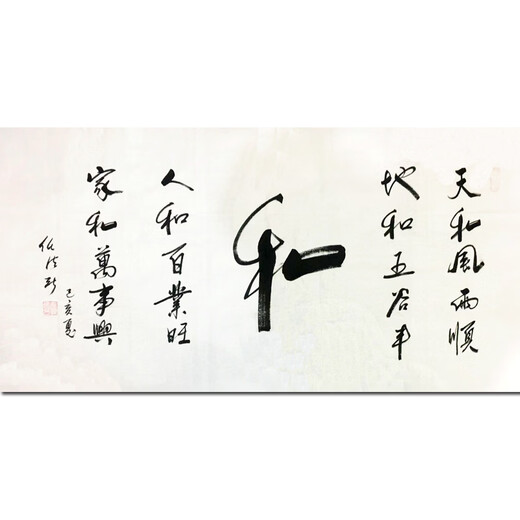 天和風雨順
地和五谷丰
和
人和百業旺
家和萬事興
己亥夏